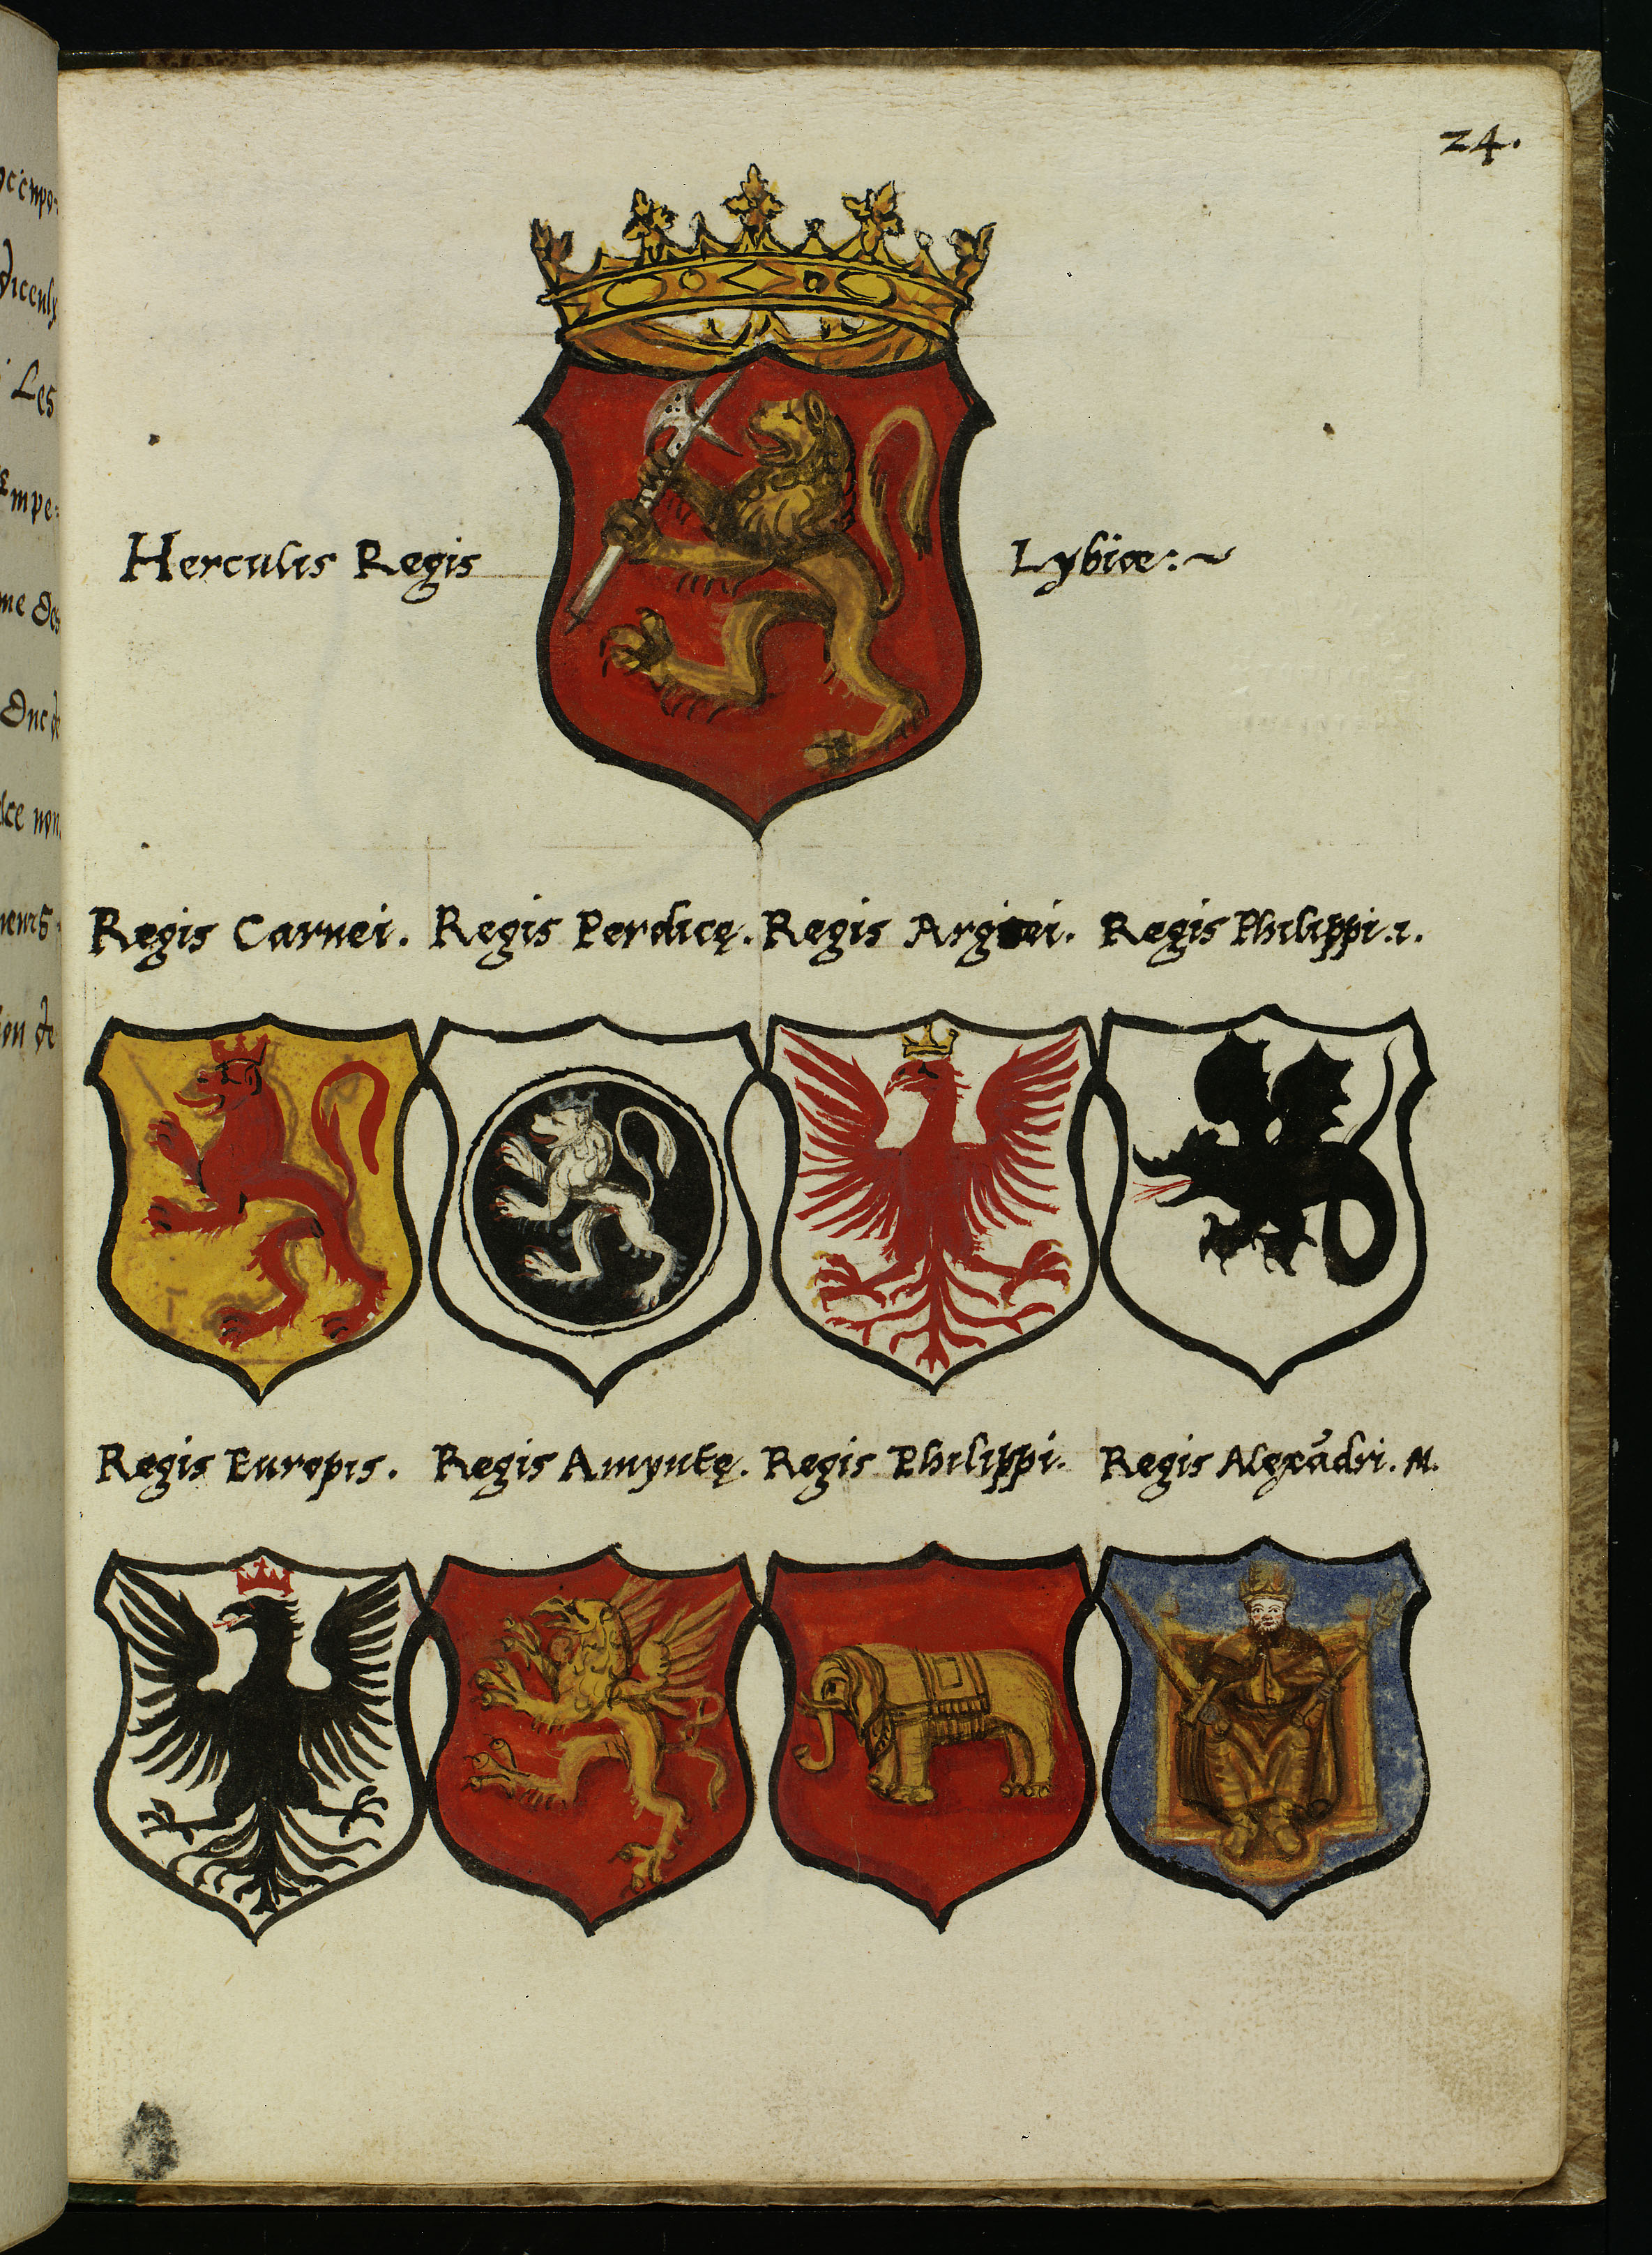 24.
Herculis Regis Lybiæ:~
Regis Carnei. Regis Perdicę. Regis Argæi. Regis Philippi.1.
Regis Europis. Regis Amyntę. Regis Philippi. Regis Alexādri. M.
Les